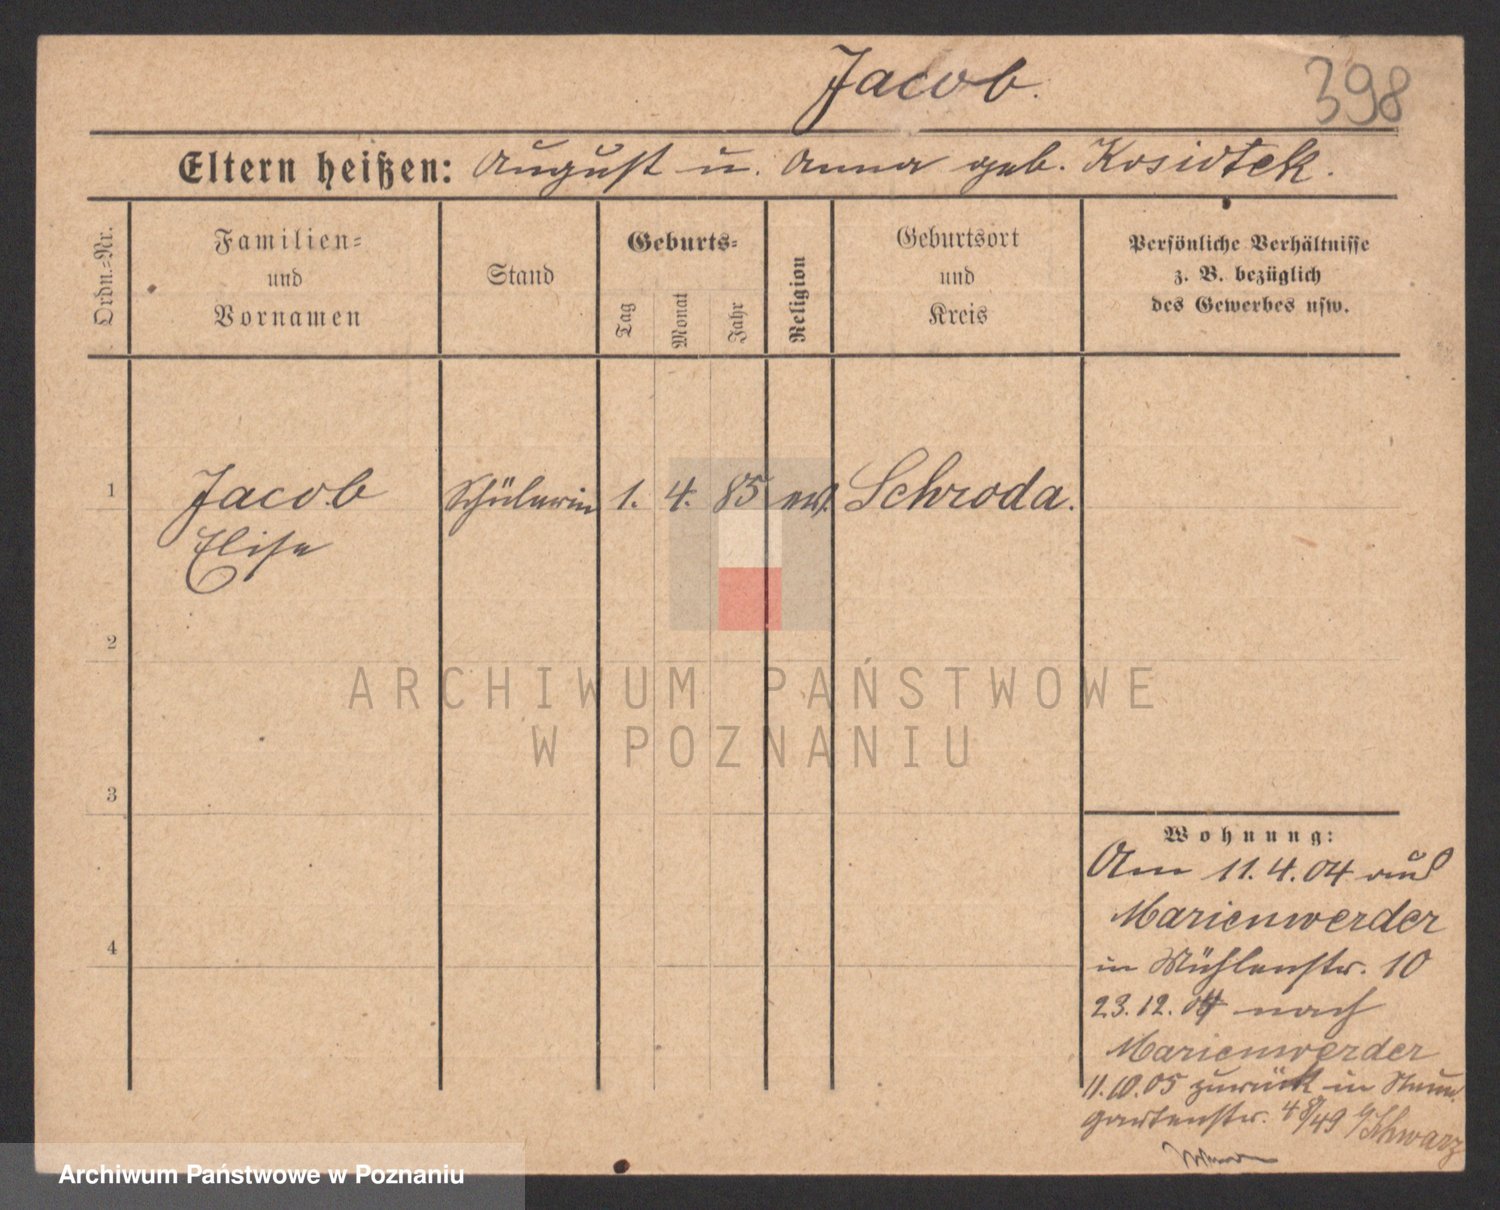 Jacob.
398
Eltern heißen: August u. Anna geb. Kosiotek.
Ordn.-Nr.
Familien-
und
Vornamen
Stand
Geburts-
Tag
Monat
Jahr
Religion
Geburtsort
und
Kreis
Persönliche Verhältnisse
z. B. bezüglich
des Gewerbes usw.
1 Jacob Schülerin 1. 4. 85 ev. Schroda.
Elise
2
ARCHIWUM PAŃSTWOWE
W POZNANIU
3
Wohnung:
Am 11.4.04 aus
Marienwerder
4
in Mühlenstr. 10
23.12.04 nach
Marienwerder
11.10.05 zurück in
gartenstr. Schwarz
Archiwum Państwowe w Poznaniu